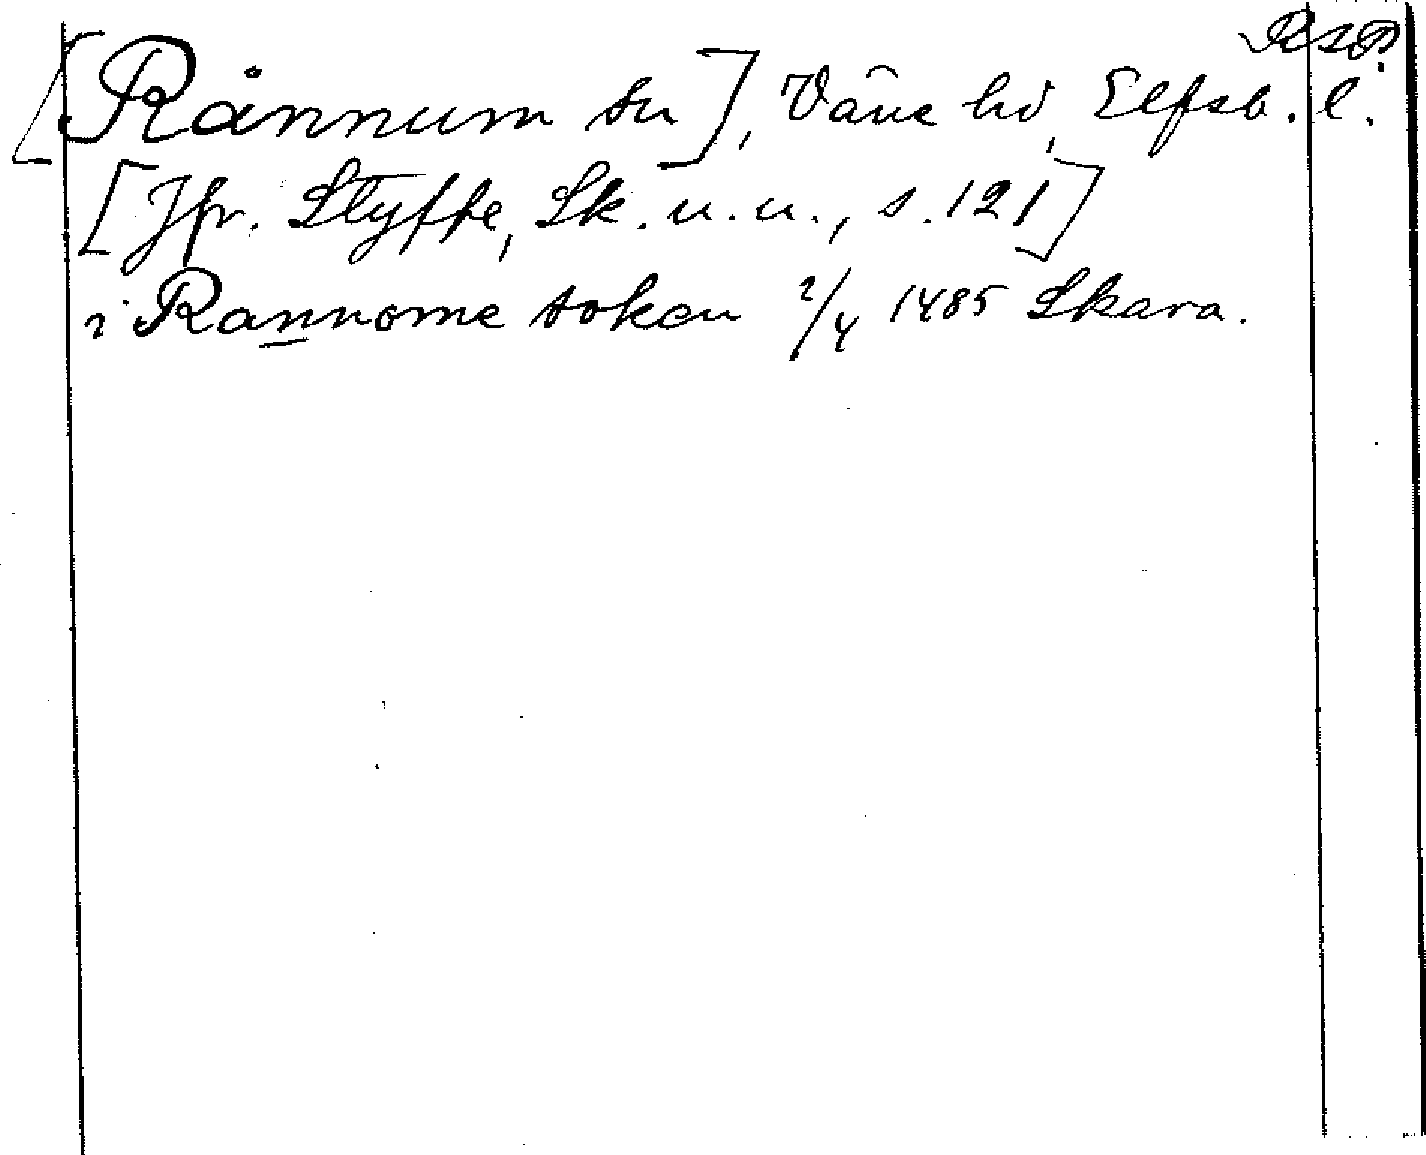 RSP.
[Rånnum sn], Väne hd, Elfsb. l.
[Jfr. Styffe, Sk. u. u., s. 121]
i Rannome soken 2/4 1485 Skara.